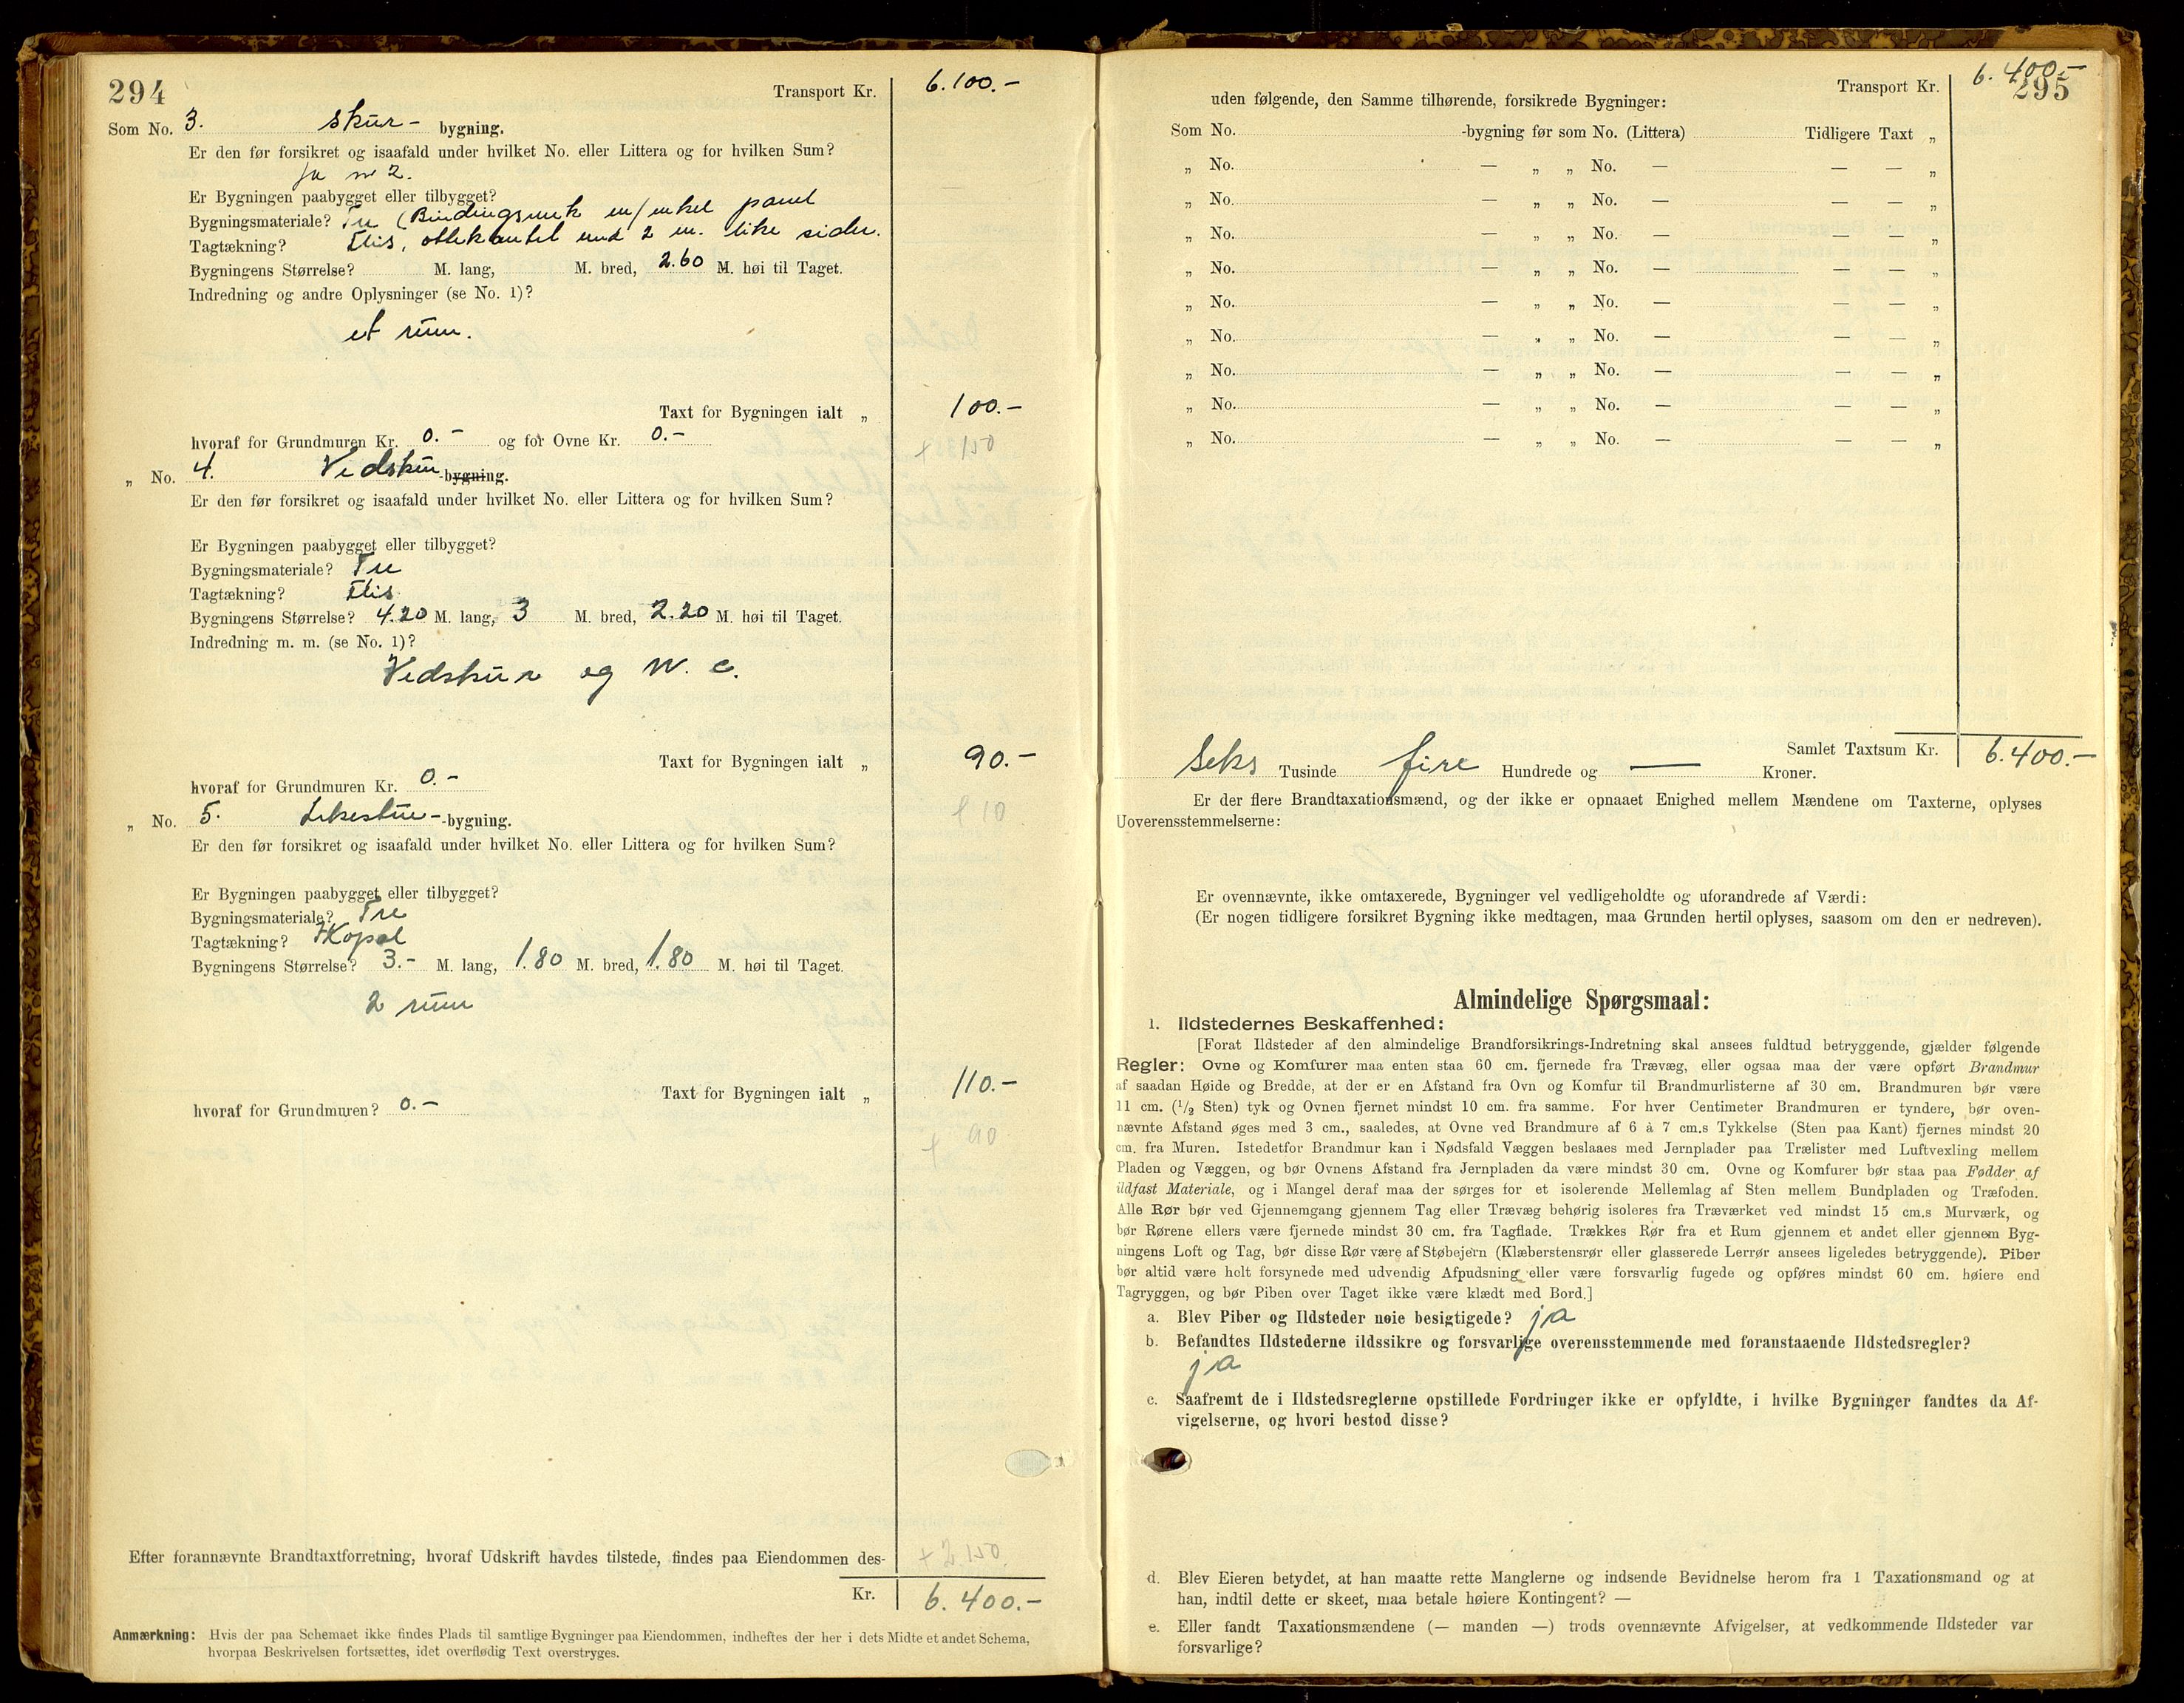 294
Transport Kr. 6.100.-
Som No. 3. skur- bygning.
Er den før forsikret og isaafald under hvilket No. eller Littera og for hvilken Sum?
ja nr 2.
Er Bygningen paabygget eller tilbygget?
Bygningsmateriale? Tre (Bindingsverk m/enkel panel
Tagtækning? Flis, ottekantet med 2 m. like sider.
Bygningens Størrelse? M. lang, M. bred, 2.60 M. høi til Taget.
Indredning og andre Oplysninger (se No. 1)?
et rum.
Taxt for Bygningen ialt „ 100.-
hvoraf for Grundmuren Kr. 0.- og for Ovne Kr. 0.-
+ 150
„ No. 4. Vedskur -bygning.
Er den før forsikret og isaafald under hvilket No. eller Littera og for hvilken Sum?
Er Bygningen paabygget eller tilbygget?
Bygningsmateriale? Tre
Tagtækning? Flis
Bygningens Størrelse? 4.20 M. lang, 3 M. bred, 2.20 M. høi til Taget.
Indredning m. m. (se No. 1)?
Vedskur og W. C.
Taxt for Bygningen ialt „ 90.-
hvoraf for Grundmuren Kr. 0.-
110
„ No. 5. Lekestue- -bygning.
Er den før forsikret og isaafald under hvilket No. eller Littera og for hvilken Sum?
Er Bygningen paabygget eller tilbygget?
Bygningsmateriale? Tre
Tagtækning? Kopal
Bygningens Størrelse? 3.- M. lang, 1.80 M. bred, 1.80 M. høi til Taget.
2 rum
Taxt for Bygningen ialt „ 110.-
hvoraf for Grundmuren? 0.-
+ 90
Efter forannævnte Brandtaxtforretning, hvoraf Udskrift havdes tilstede, findes paa Eiendommen des- + 2.150.
Kr. 6.400.-
Anmærkning: Hvis der paa Schemaet ikke findes Plads til samtlige Bygninger paa Eiendommen, indheftes der her i dets Midte et andet Schema,
hvorpaa Beskrivelsen fortsættes, idet overflødig Text overstryges.
295
Transport Kr. 6.400.-
uden følgende, den Samme tilhørende, forsikrede Bygninger:
Som No. -bygning før som No. (Littera) Tidligere Taxt „
„ No. — „ „ No. — — — „
„ No. — „ „ No. — — — „
„ No. — „ „ No. — — — „
„ No. — „ „ No. — — — „
„ No. — „ „ No. — — — „
„ No. — „ „ No. — — — „
„ No. — „ „ No. — — — „
„ No. — „ „ No. — — — „
„ No. — „ „ No. — — — „
Samlet Taxtsum Kr. 6.400.-
Seks Tusinde fire Hundrede og — Kroner.
Er der flere Brandtaxationsmænd, og der ikke er opnaaet Enighed mellem Mændene om Taxterne, oplyses
Uoverensstemmelserne:
Er ovennævnte, ikke omtaxerede, Bygninger vel vedligeholdte og uforandrede af Værdi:
(Er nogen tidligere forsikret Bygning ikke medtagen, maa Grunden hertil oplyses, saasom om den er nedreven).
Almindelige Spørgsmaal:
1. Ildstedernes Beskaffenhed:
[Forat Ildsteder af den almindelige Brandforsikrings-Indretning skal ansees fuldtud betryggende, gjælder følgende
Regler: Ovne og Komfurer maa enten staa 60 cm. fjernede fra Trævæg, eller ogsaa maa der være opført Brandmur
af saadan Høide og Bredde, at der er en Afstand fra Ovn og Komfur til Brandmurlisterne af 30 cm. Brandmuren bør være
11 cm. (1/2 Sten) tyk og Ovnen fjernet mindst 10 cm. fra samme. For hver Centimeter Brandmuren er tyndere, bør oven-
nævnte Afstand øges med 3 cm., saaledes, at Ovne ved Brandmure af 6 à 7 cm.s Tykkelse (Sten paa Kant) fjernes mindst 20
cm. fra Muren. Istedetfor Brandmur kan i Nødsfald Væggen beslaaes med Jernplader paa Trælister med Luftvexling mellem
Pladen og Væggen, og bør Ovnens Afstand fra Jernpladen da være mindst 30 cm. Ovne og Komfurer bør staa paa Fødder af
ildfast Materiale, og i Mangel deraf maa der sørges for et isolerende Mellemlag af Sten mellem Bundpladen og Træfoden.
Alle Rør bør ved Gjennemgang gjennem Tag eller Trævæg behørig isoleres fra Træværket ved mindst 15 cm.s Murværk, og
bør Rørene ellers være fjernede mindst 30 cm. fra Tagflade. Trækkes Rør fra et Rum gjennem et andet eller gjennem Byg-
ningens Loft og Tag, bør disse Rør være af Støbejern (Klæberstensrør eller glasserede Lerrør ansees ligeledes betryggende). Piber
bør altid være helt forsynede med udvendig Afpudsning eller være forsvarlig fugede og opføres mindst 60 cm. høiere end
Tagryggen, og bør Piben over Taget ikke være klædt med Bord.]
a. Blev Piber og Ildsteder nøie besigtigede? ja
b. Befandtes Ildstederne ildssikre og forsvarlige overensstemmende med foranstaaende Ildstedsregler?
ja
c. Saafremt de i Ildstedsreglerne opstillede Fordringer ikke er opfyldte, i hvilke Bygninger fandtes da Af-
vigelserne, og hvori bestod disse?
d. Blev Eieren betydet, at han maatte rette Manglerne og indsende Bevidnelse herom fra 1 Taxationsmand og at
han, indtil dette er skeet, maa betale høiere Kontingent? —
e. Eller fandt Taxationsmændene (— manden —) trods ovennævnte Afvigelser, at vedkommende Ildsteder var
forsvarlige?